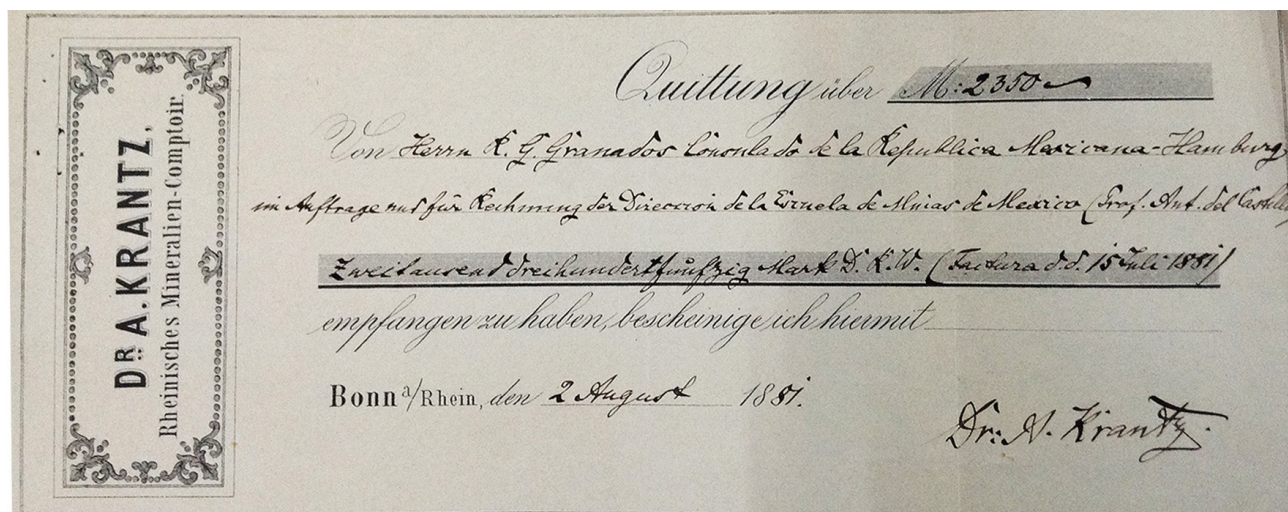 DR. A. KRANTZ,
Rheinisches Mineralien-Comptoir.
Quittung über M: 2350
Von Herrn K. G. Granados Consulado de la Republica Mexicana-Hamburg
im Auftrage und für Rechnung der Direccion de la Escuela de Minas de Mexico (Prof. Ant. del Castillo
Zweitausend dreihundertfünfzig Mark D. R. W. (Factura d. d. 15 Juli 1881)
empfangen zu haben, bescheinige ich hiermit
Bonn a/Rhein, den 2 August 1881.
Dr: A. Krantz.